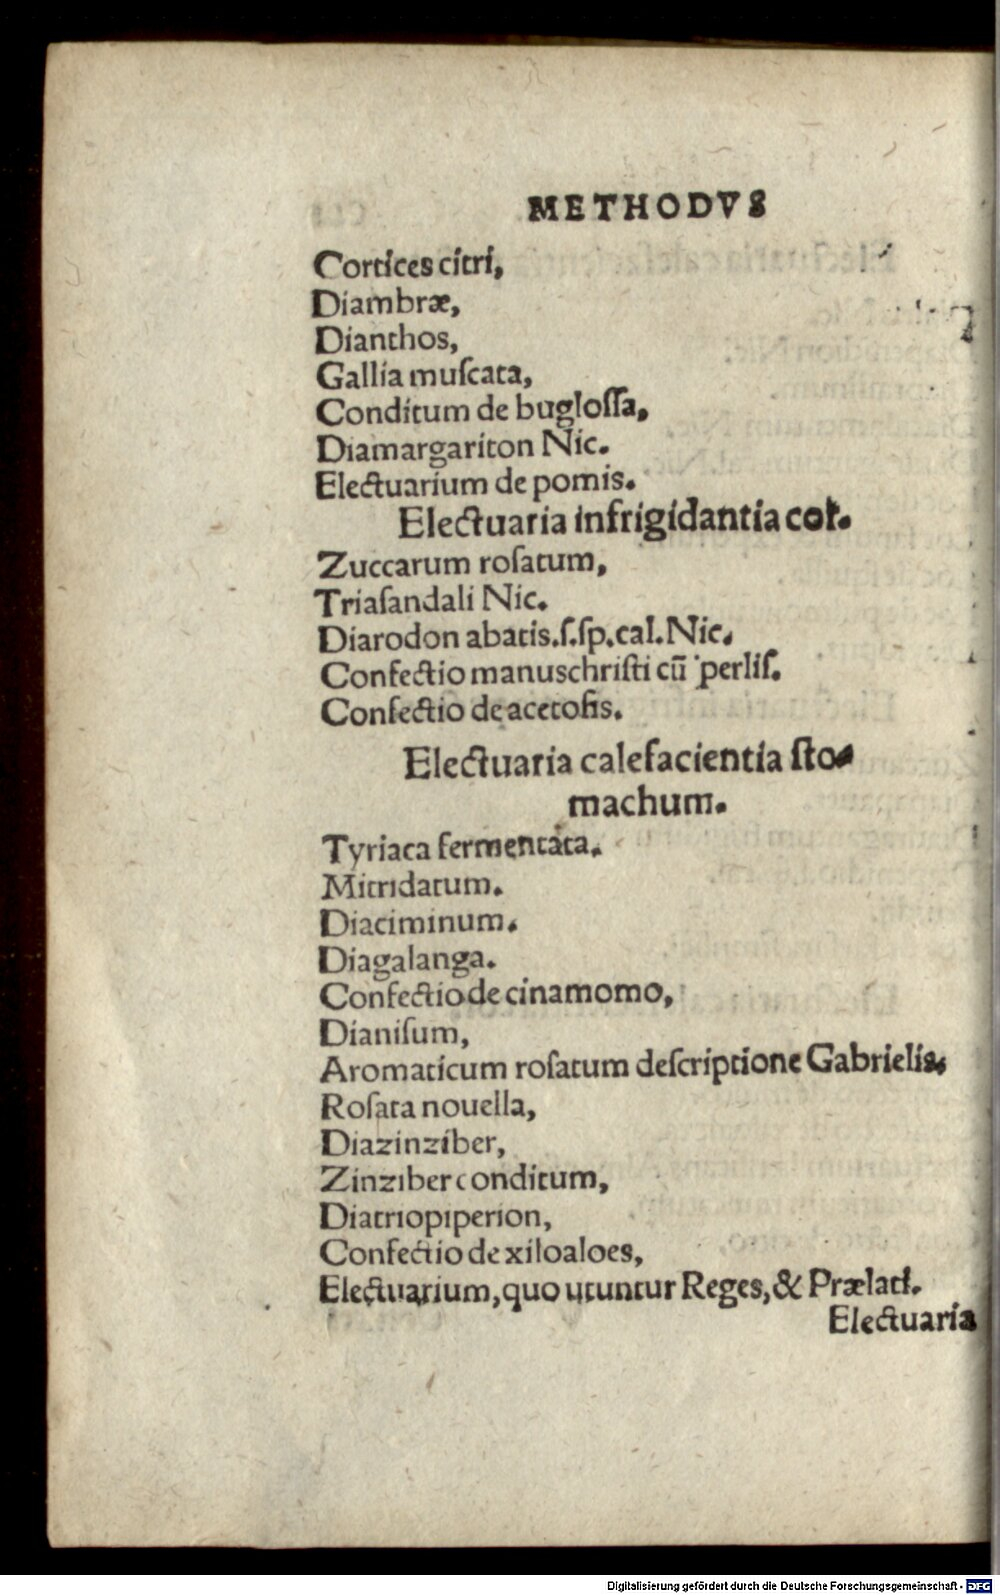 METHODVS
Cortices citri,
Diambræ,
Dianthos,
Gallia muſcata,
Conditum de bugloſſa,
Diamargariton Nic.
Electuarium de pomis.
Electuaria infrigidantia cor.
Zuccarum roſatum,
Triaſandali Nic.
Diarodon abatis.ſ.ſp.cal.Nic.
Confectio manuschriſti cū perliſ.
Confectio de acetoſis.
Electuaria calefacientia ſto⸗
machum.
Tyriaca fermentata.
Mitridatum.
Diaciminum.
Diagalanga.
Confectio de cinamomo,
Dianiſum,
Aromaticum roſatum deſcriptione Gabrielis.
Roſata nouella,
Diazinziber,
Zinziber conditum,
Diatriopiperion,
Confectio de xiloaloes,
Electuarium, quo utuntur Reges, & Prælati.
Electuaria
Digitalisierung gefördert durch die Deutsche Forschungsgemeinschaft - DFG